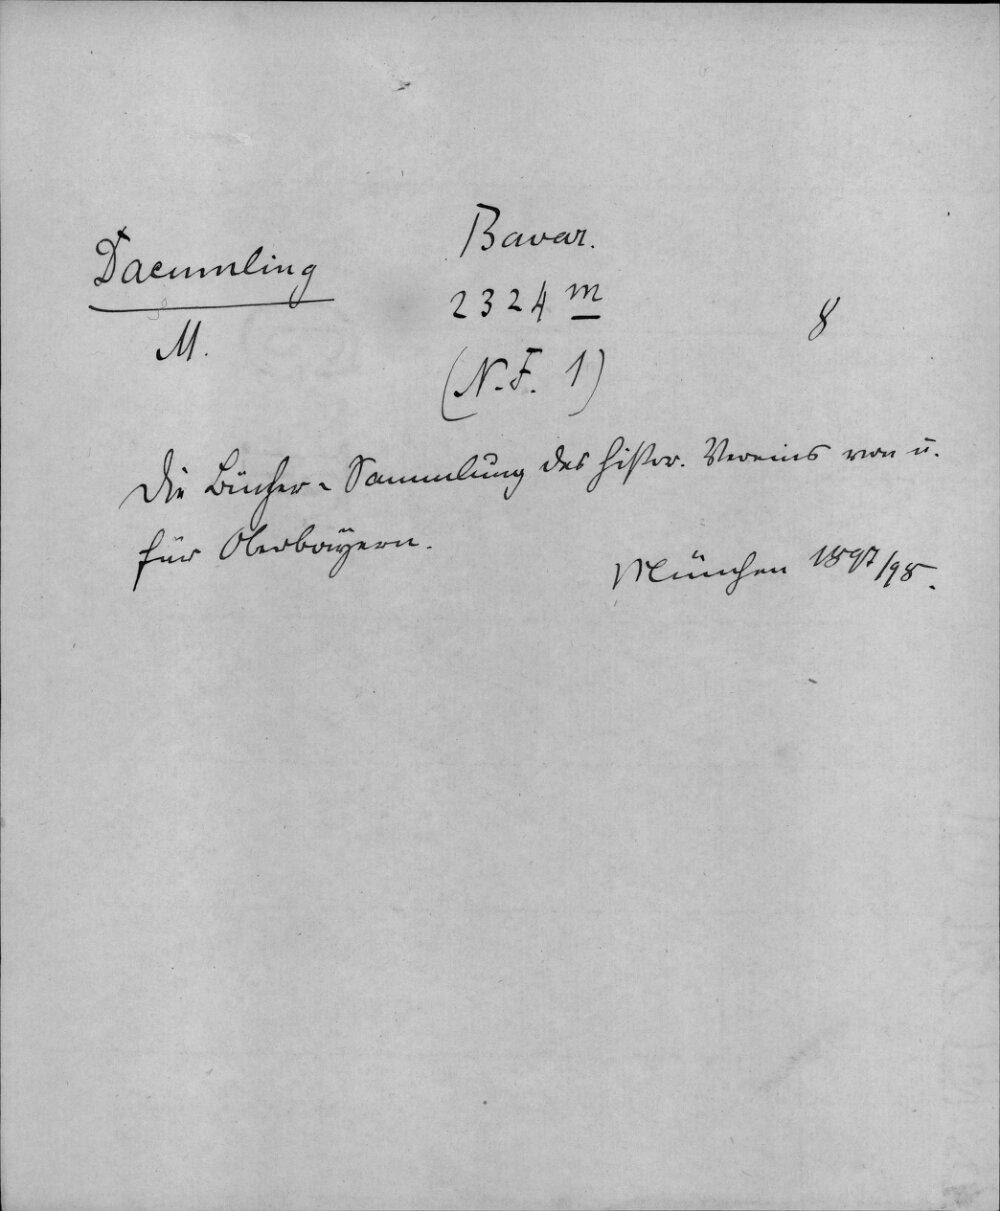 Daemmling
M.
Bavar.
2324 m
(N.F. 1)
8
Die Bücher-Sammlung des histor. Vereins von u.
für Oberbayern.
München 1897/98.